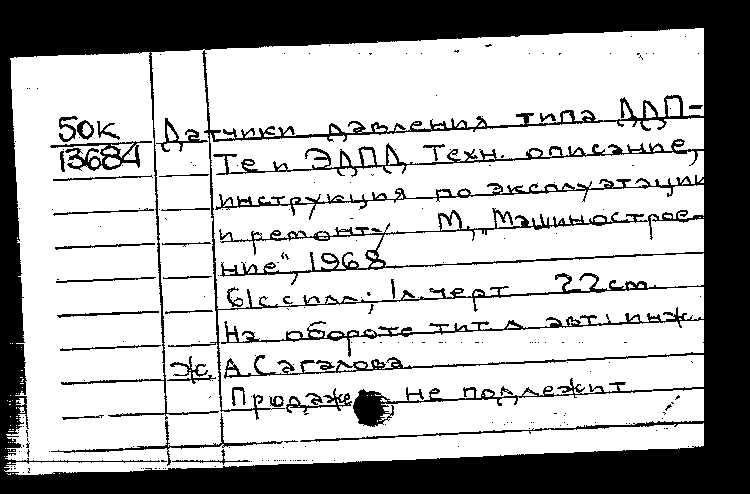 50к Датчики давления типа ДДП-
13684 Те и ЭДПД. Техн. описание,
инструкция по эксплуатации
и ремонту М, „Машинострое-
ние", 1968
61с. с илл.; 1л. черт 22cm.
На обороте тит. л авт.: инж.
ж. А. Сагалова.
Продаже не подлежит